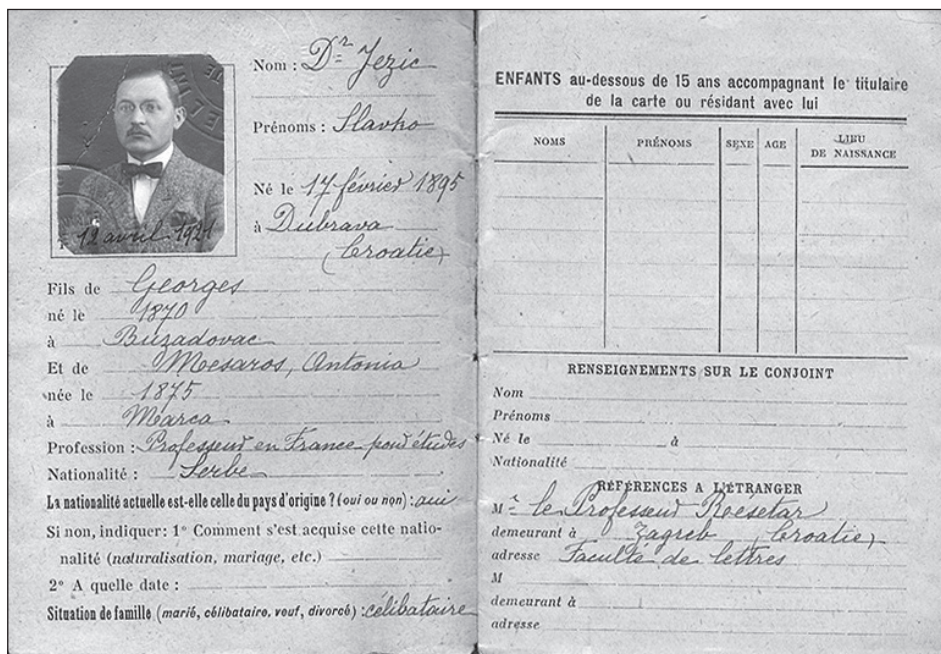 Nom : Dr Jezic
Prénoms : Slavko
Né le 17 février 1895
à Dubrava
(Croatie)
12 avril 1921
Fils de Georges
né le 1870
à Buzadovac
Et de Mesaros, Antonia
née le 1875
à Marca
Profession : Professeur en France pour études
Nationalité : Serbe
La nationalité actuelle est-elle celle du pays d'origine ? (oui ou non) : oui
Si non, indiquer : 1° Comment s'est acquise cette natio-
nalité (naturalisation, mariage, etc.)
2° A quelle date :
Situation de famille (marié, célibataire, veuf, divorcé) : célibataire
ENFANTS au-dessous de 15 ans accompagnant le titulaire
de la carte ou résidant avec lui
NOMS PRÉNOMS SEXE AGE LIEU
DE NAISSANCE
RENSEIGNEMENTS SUR LE CONJOINT
Nom
Prénoms
Né le à
Nationalité
RÉFÉRENCES A L'ÉTRANGER
Mr le Professeur Resetar
demeurant à Zagreb (Croatie)
adresse Faculté de lettres
M
demeurant à
adresse